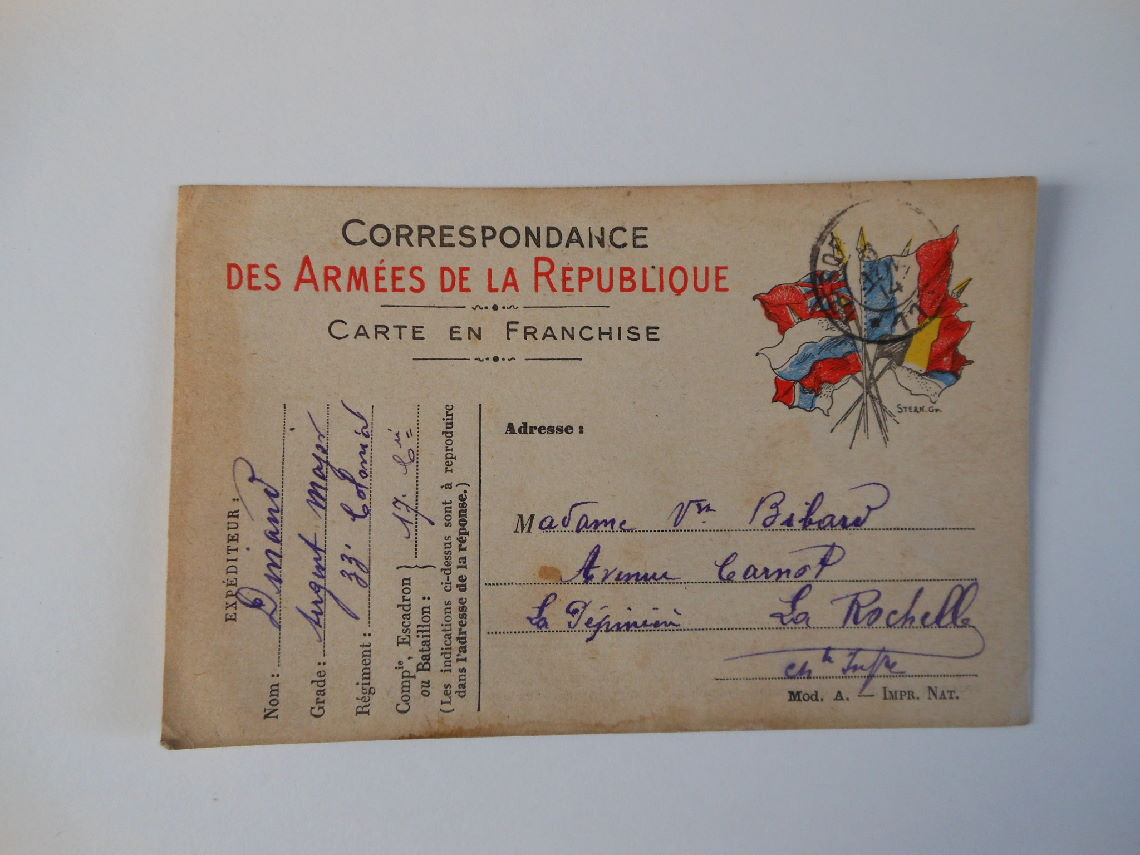 CORRESPONDANCE
DES ARMÉES DE LA RÉPUBLIQUE
CARTE EN FRANCHISE
STERN. Gr.
EXPÉDITEUR :
Nom : Dinand
Grade : Sergent Major
Régiment : 33e Colonial
Compie, Escadron
ou Bataillon : } 17e Cie
(Les indications ci-dessus sont à reproduire
dans l'adresse de la réponse.)
Adresse :
Madame Vve Bibard
Avenue Carnot
La Pépinière La Rochelle
chte Infre
Mod. A. — IMPR. NAT.